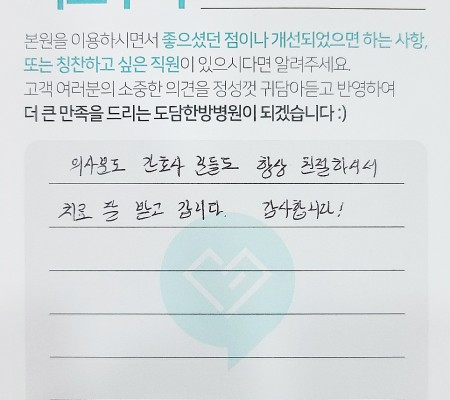 본원을 이용하시면서 좋으셨던 점이나 개선되었으면 하는 사항,
또는 칭찬하고 싶은 직원이 있으시다면 알려주세요.
고객 여러분의 소중한 의견을 정성껏 귀담아듣고 반영하여
더 큰 만족을 드리는 도담한방병원이 되겠습니다 :)
의사분도 간호사 분들도 항상 친절하셔서
치료 잘 받고 갑니다. 감사합니다!